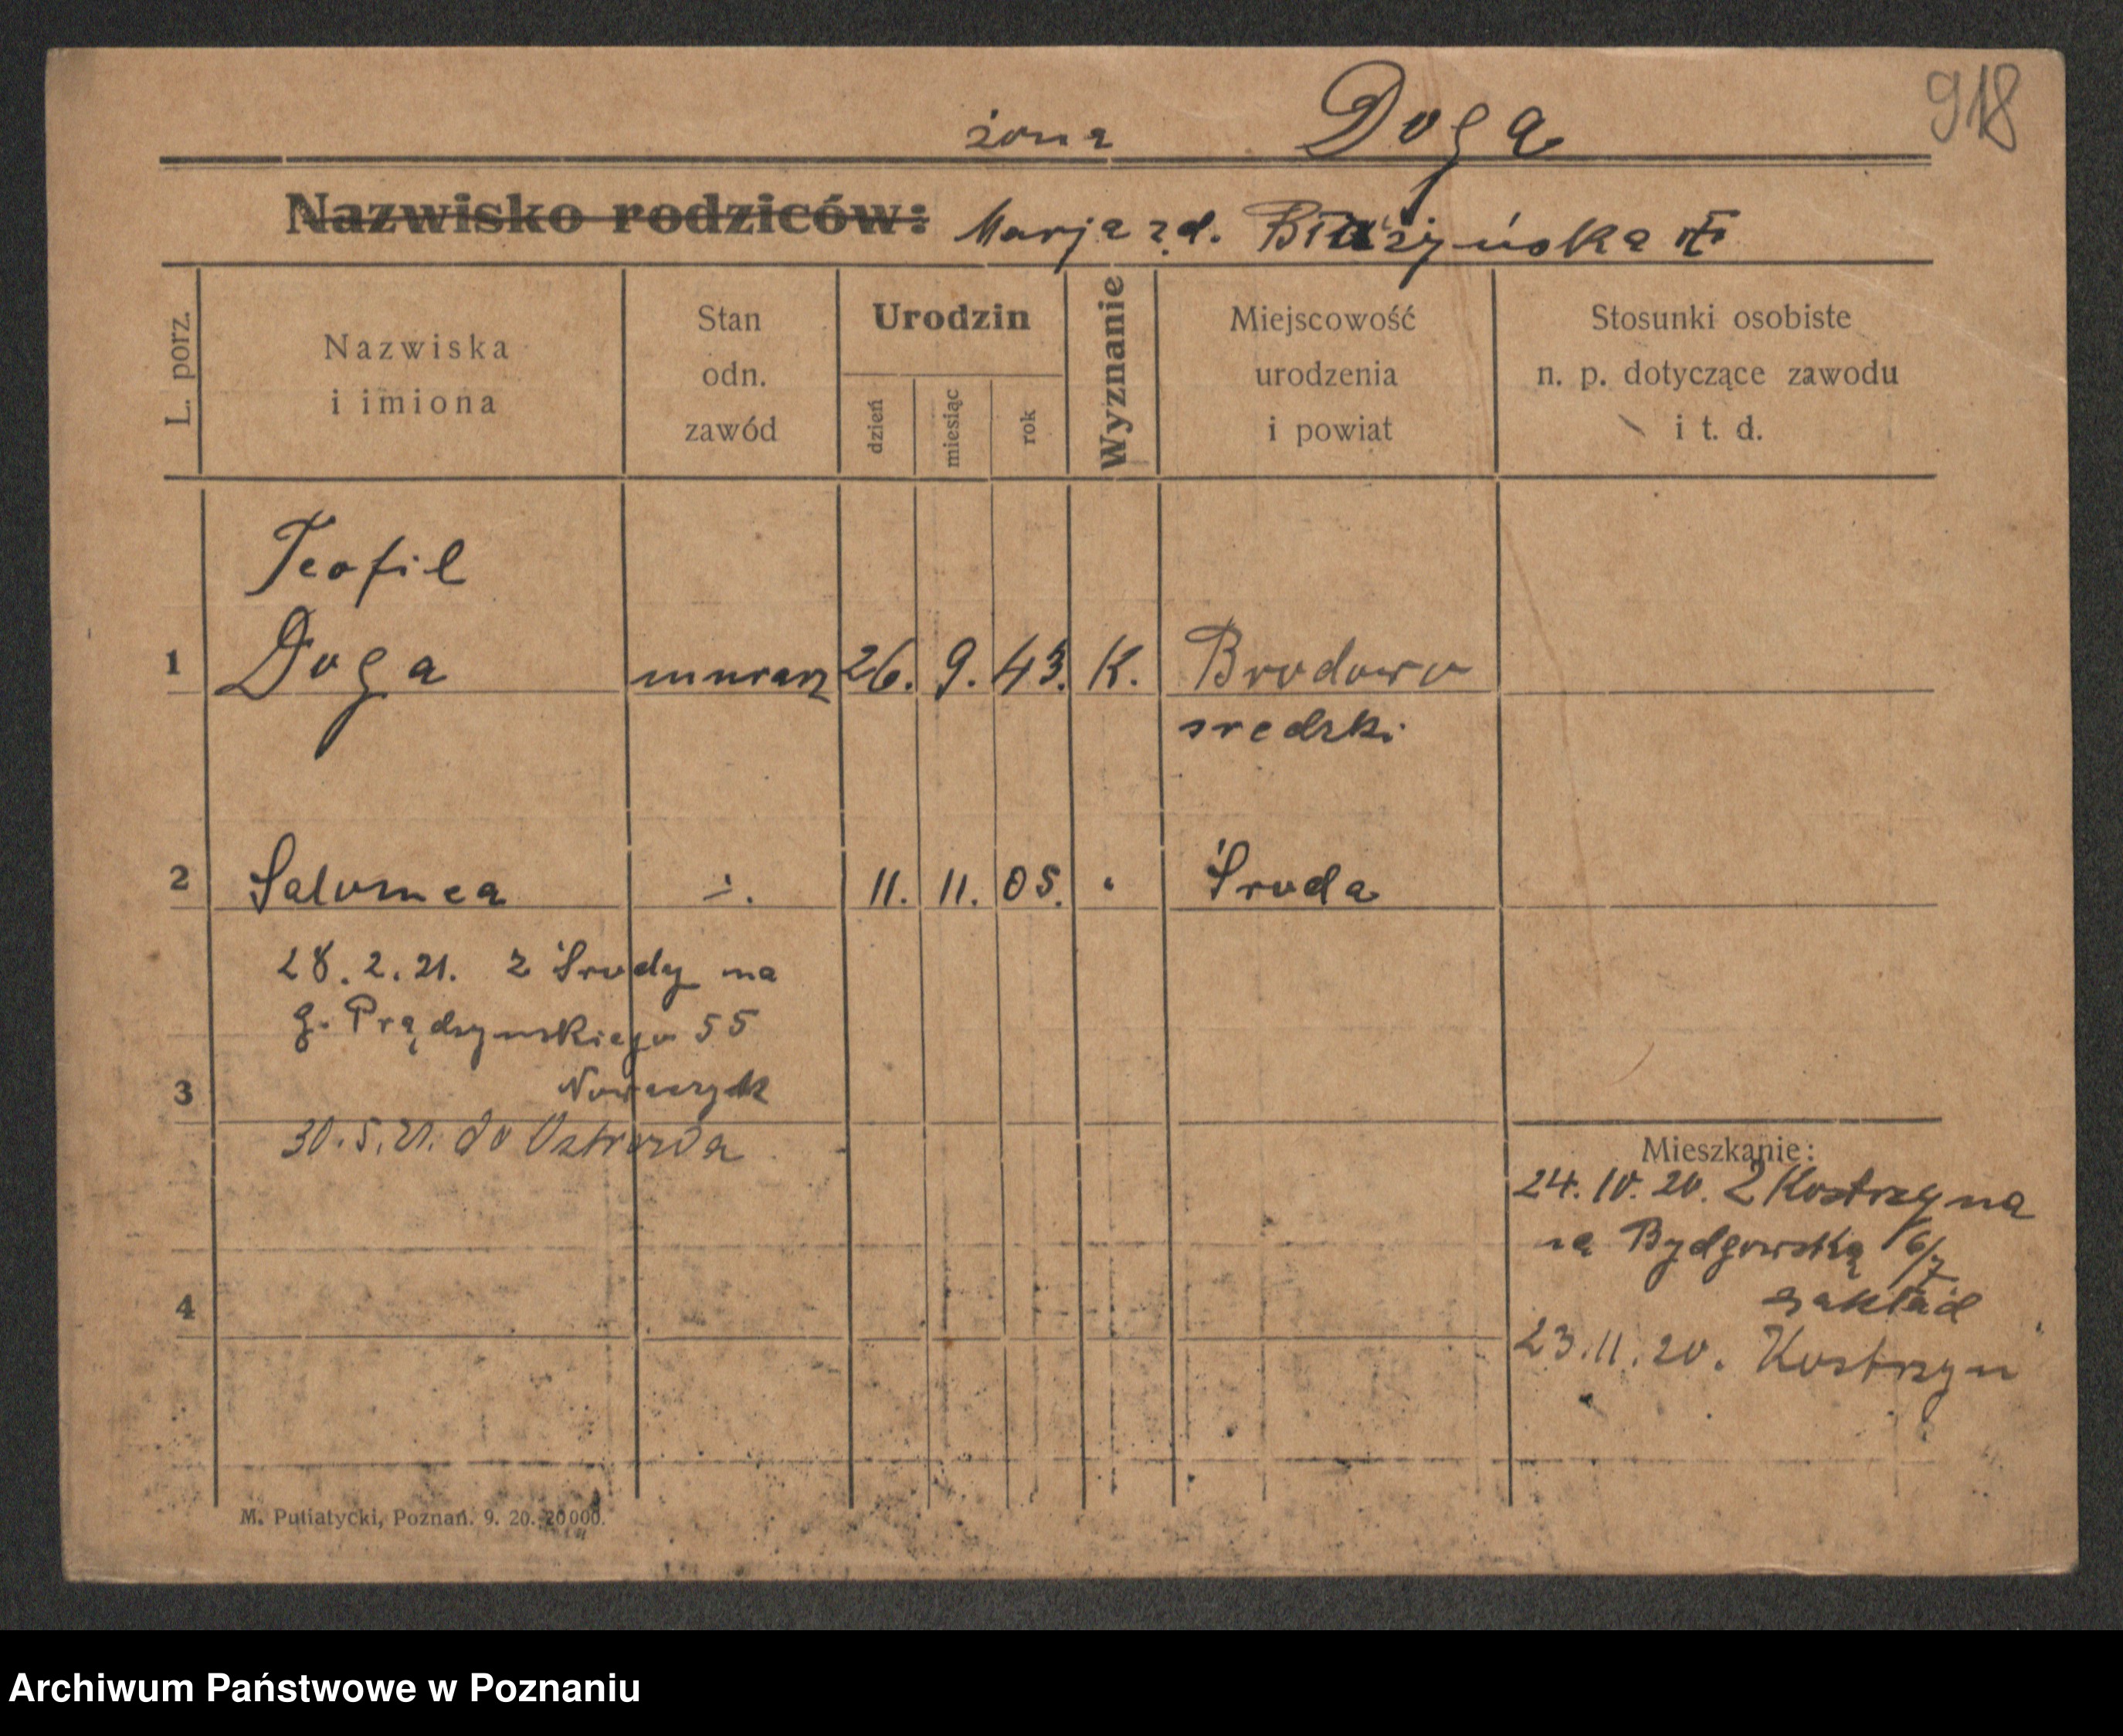 918
żona Doga
Nazwisko rodziców: Marja zd. Błażyńska
L. porz.
Nazwiska
i imiona
Stan
odn.
zawód
Urodzin
dzień
miesiąc
rok
Wyznanie
Miejscowość
urodzenia
i powiat
Stosunki osobiste
n. p. dotyczące zawodu
i t. d.
Teofil
1 Doga murarz 26. 9. 43. K. Brodowo
sredzki
2 Salomea -:-. 11. 11. 05. " Środa
28.2.21. z Środy na
g. Prądzynskiego 55
3 Nowaczyk
30.5.21. do Ostrowa
Mieszkanie:
24.10.20. z Kostrzyna
na Bydgowską 6/7
zakład
4
23.11.20. Kostrzyn
M. Putiatycki, Poznań. 9. 20. 20 000.
Archiwum Państwowe w Poznaniu